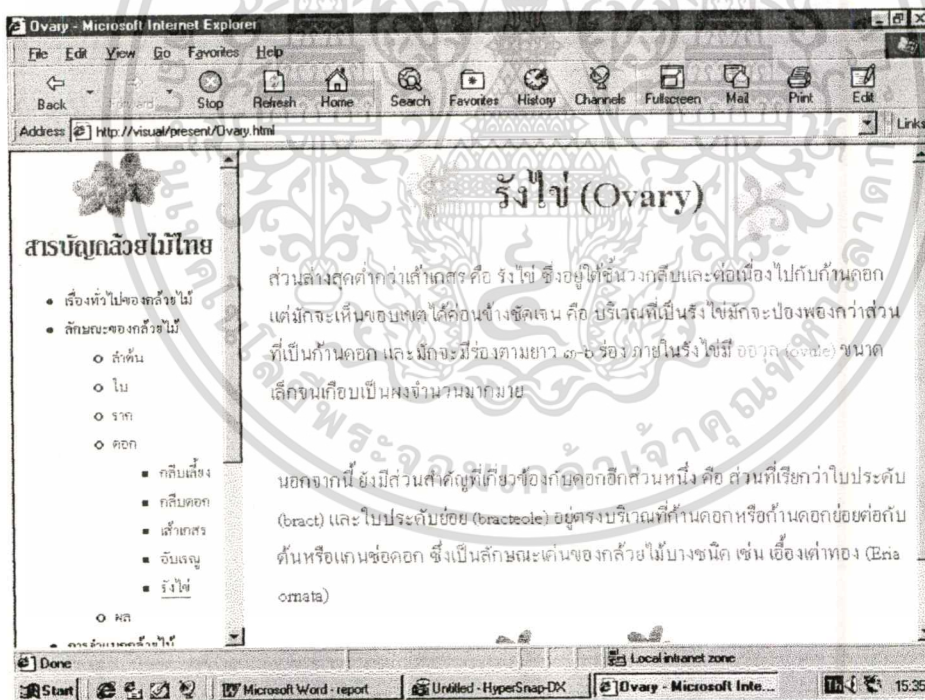 Ovary - Microsoft Internet Explorer
File Edit View Go Favorites Help
Back Forward Stop Refresh Home Search Favorites History Channels Fullscreen Mail Print Edit
Address http://visual/present/Ovary.html Links
สารบัญกล้วยไม้ไทย
เรื่องทั่วไปของกล้วยไม้
ลักษณะของกล้วยไม้
ลำต้น
ใบ
ราก
ดอก
กลีบเลี้ยง
กลีบดอก
เส้าเกสร
อับเรณู
รังไข่
ผล
การจำแนกกล้วยไม้
รังไข่ (Ovary)
ส่วนล่างสุดต่ำกว่าเส้าเกสร คือ รังไข่ ซึ่งอยู่ใต้ชั้นวงกลีบและต่อเนื่องไปกับก้านดอก
แต่มักจะเห็นขอบเขตได้ค่อนข้างชัดเจน คือ บริเวณที่เป็นรังไข่มักจะป่องพองกว่าส่วน
ที่เป็นก้านดอก และมักจะมีร่องตามยาว ๓-๖ ร่อง ภายในรังไข่มี ออวุล (ovule) ขนาด
เล็กจนเกือบเป็นผงจำนวนมากมาย
นอกจากนี้ ยังมีส่วนสำคัญที่เกี่ยวข้องกับดอกอีกส่วนหนึ่ง คือ ส่วนที่เรียกว่าใบประดับ
(bract) และใบประดับย่อย (bracteole) อยู่ตรงบริเวณที่ก้านดอกหรือก้านดอกย่อยต่อกับ
ต้นหรือแกนช่อดอก ซึ่งเป็นลักษณะเด่นของกล้วยไม้บางชนิด เช่น เอื้องเต่าทอง (Eria
ornata)
Done Local intranet zone
Start Microsoft Word - report Untitled - HyperSnap-DX Ovary - Microsoft Inte... 15:35